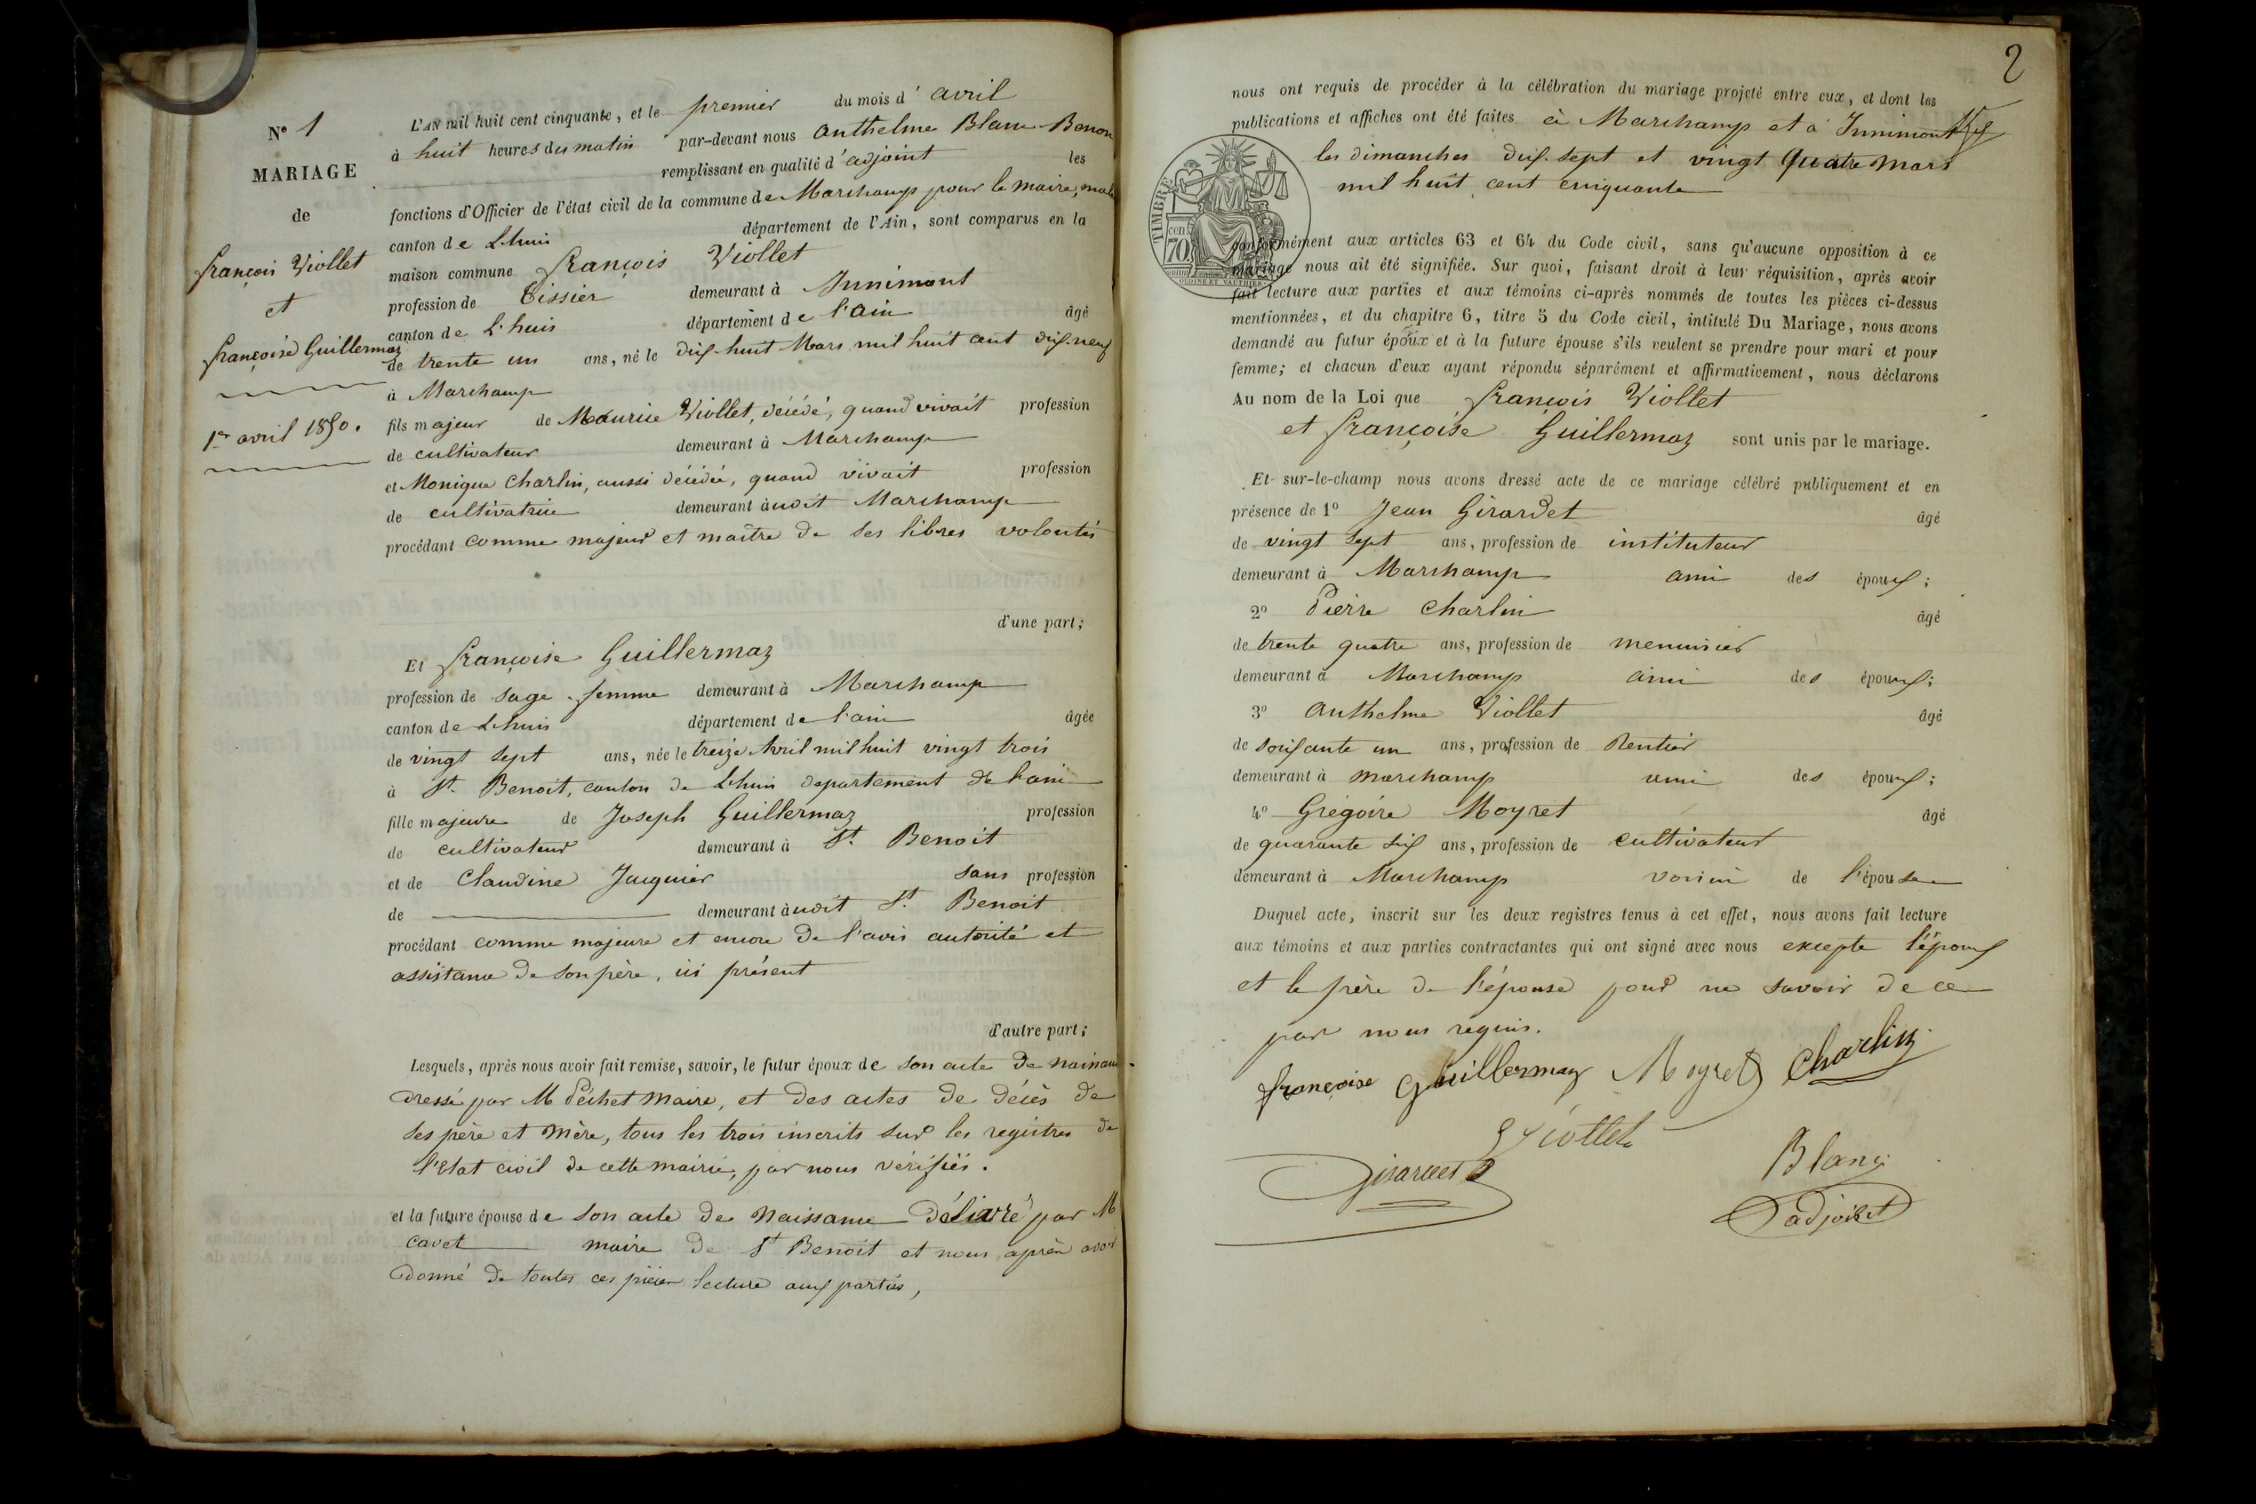 N° 1
MARIAGE
de
françois Viollet
et
françoise Guillermaz
1er avril 1850.
L'AN mil huit cent cinquante, et le premier du mois d'avril
à huit heures du matin par-devant nous anthelme Blanc-Benon
remplissant en qualité d'adjoint les
fonctions d'Officier de l'état civil de la commune de Marchamp pour le maire,
canton de Lhuis département de l'Ain, sont comparus en la
maison commune françois Viollet
profession de tissier demeurant à Innimont
canton de L'huis département de l'ain âgé
de trente un ans, né le dix-huit Mars mil huit cent dix-neuf
à Marchamp
fils majeur de Maurice Viollet, décédé, quand vivait profession
de cultivateur demeurant à Marchamp
et Monique Charlin, aussi décédée, quand vivait profession
de cultivatrice demeurant àudit Marchamp
procédant comme majeur et maître de ses libres volontés
d'une part;
Et françoise Guillermaz
profession de sage-femme demeurant à Marchamp
canton de Lhuis département de l'ain âgée
de vingt sept ans, née le treize Avril mil huit vingt trois
à St. Benoit, canton de Lhuis departement de l'ain
fille majeure de Joseph Guillermaz profession
de cultivateur demeurant à St. Benoit
et de Claudine Jacquier sans profession
de demeurant àudit St. Benoit
procédant comme majeure et encore de l'avis autorité et
assistance de son père, ici présent
d'autre part;
Lesquels, après nous avoir fait remise, savoir, le futur époux de son acte de naissance
dressé par M Péchet maire, et des actes de décès de
ses père et mère, tous les trois inscrits sur les registres de
l'Etat civil de cette mairie, par nous vérifiés.
et la future épouse de son acte de Naissance délivré par M
cavet maire de St Benoit et nous après avoir
donné de toutes ces pièces lecture aux parties,
2
nous ont requis de procéder à la célébration du mariage projeté entre eux, et dont les
publications et affiches ont été faites à Marchamp et à Innimont
les dimanches dix-sept et vingt quatre mars
mil huit cent cinquante
TIMBRE
70
conformément aux articles 63 et 64 du Code civil, sans qu'aucune opposition à ce
mariage nous ait été signifiée. Sur quoi, faisant droit à leur réquisition, après avoir
fait lecture aux parties et aux témoins ci-après nommés de toutes les pièces ci-dessus
mentionnées, et du chapitre 6, titre 5 du Code civil, intitulé Du Mariage, nous avons
demandé au futur époux et à la future épouse s'ils veulent se prendre pour mari et pour
femme; et chacun d'eux ayant répondu séparément et affirmativement, nous déclarons
Au nom de la Loi que françois Viollet
et françoise Guillermaz sont unis par le mariage.
Et sur-le-champ nous avons dressé acte de ce mariage célébré publiquement et en
présence de 1° Jean Girardet âgé
de vingt sept ans, profession de instituteur
demeurant à Marchamp ami des époux;
2° Pierre Charlin âgé
de trente quatre ans, profession de menuisier
demeurant à Marchamp ami des époux;
3° anthelme Viollet âgé
de soixante un ans, profession de Rentier
demeurant à marchamp ami des époux;
4° Grégoire Moyret âgé
de quarante six ans, profession de cultivateur
demeurant à Marchamp voisin de l'épouse
Duquel acte, inscrit sur les deux registres tenus à cet effet, nous avons fait lecture
aux témoins et aux parties contractantes qui ont signé avec nous excepte l'époux
et le père de l'épouse pour ne savoir de ce
par nous requis.
françoise Guillermaz Moyret Charlin
Viollet
Girardet
Blanc
adjoint